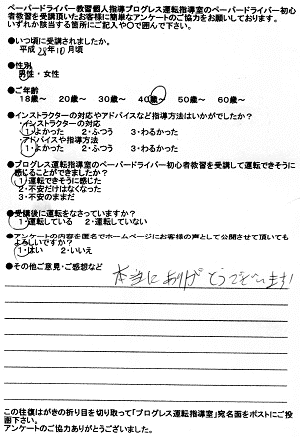 ペーパードライバー教習個人指導プログレス運転指導室のペーパードライバー初心
者教習を受講頂いたお客様に簡単なアンケートのご協力をお願いしております。
いずれか該当する箇所にご記入や○で囲んで下さい。
●いつ頃に受講されましたか。
平成 28年10月頃
●性別
男性・女性
●ご年齢
18歳～ 20歳～ 30歳～ 40歳～ 50歳～ 60歳～
●インストラクターの対応やアドバイスなど指導方法はいかがでしたか？
・インストラクターの対応
1・よかった 2・ふつう 3・わるかった
・アドバイスや指導方法
1・よかった 2・ふつう 3・わるかった
●プログレス運転指導室のペーパードライバー初心者教習を受講して運転できそうに
感じることができましたか？
1・運転できそうに感じた
2・不安だけはなくなった
3・不安のままだ
●受講後に運転をなさっていますか？
1・運転している 2・運転していない
●アンケートの内容を匿名でホームページにお客様の声として公開させて頂いても
よろしいですか？
1・はい 2・いいえ
●その他ご意見・ご感想など
本当にありがとうございます!
この往復はがきの折り目を切り取って「プログレス運転指導室」宛名面をポストにご投
函下さい。
アンケートのご協力ありがとうございました。